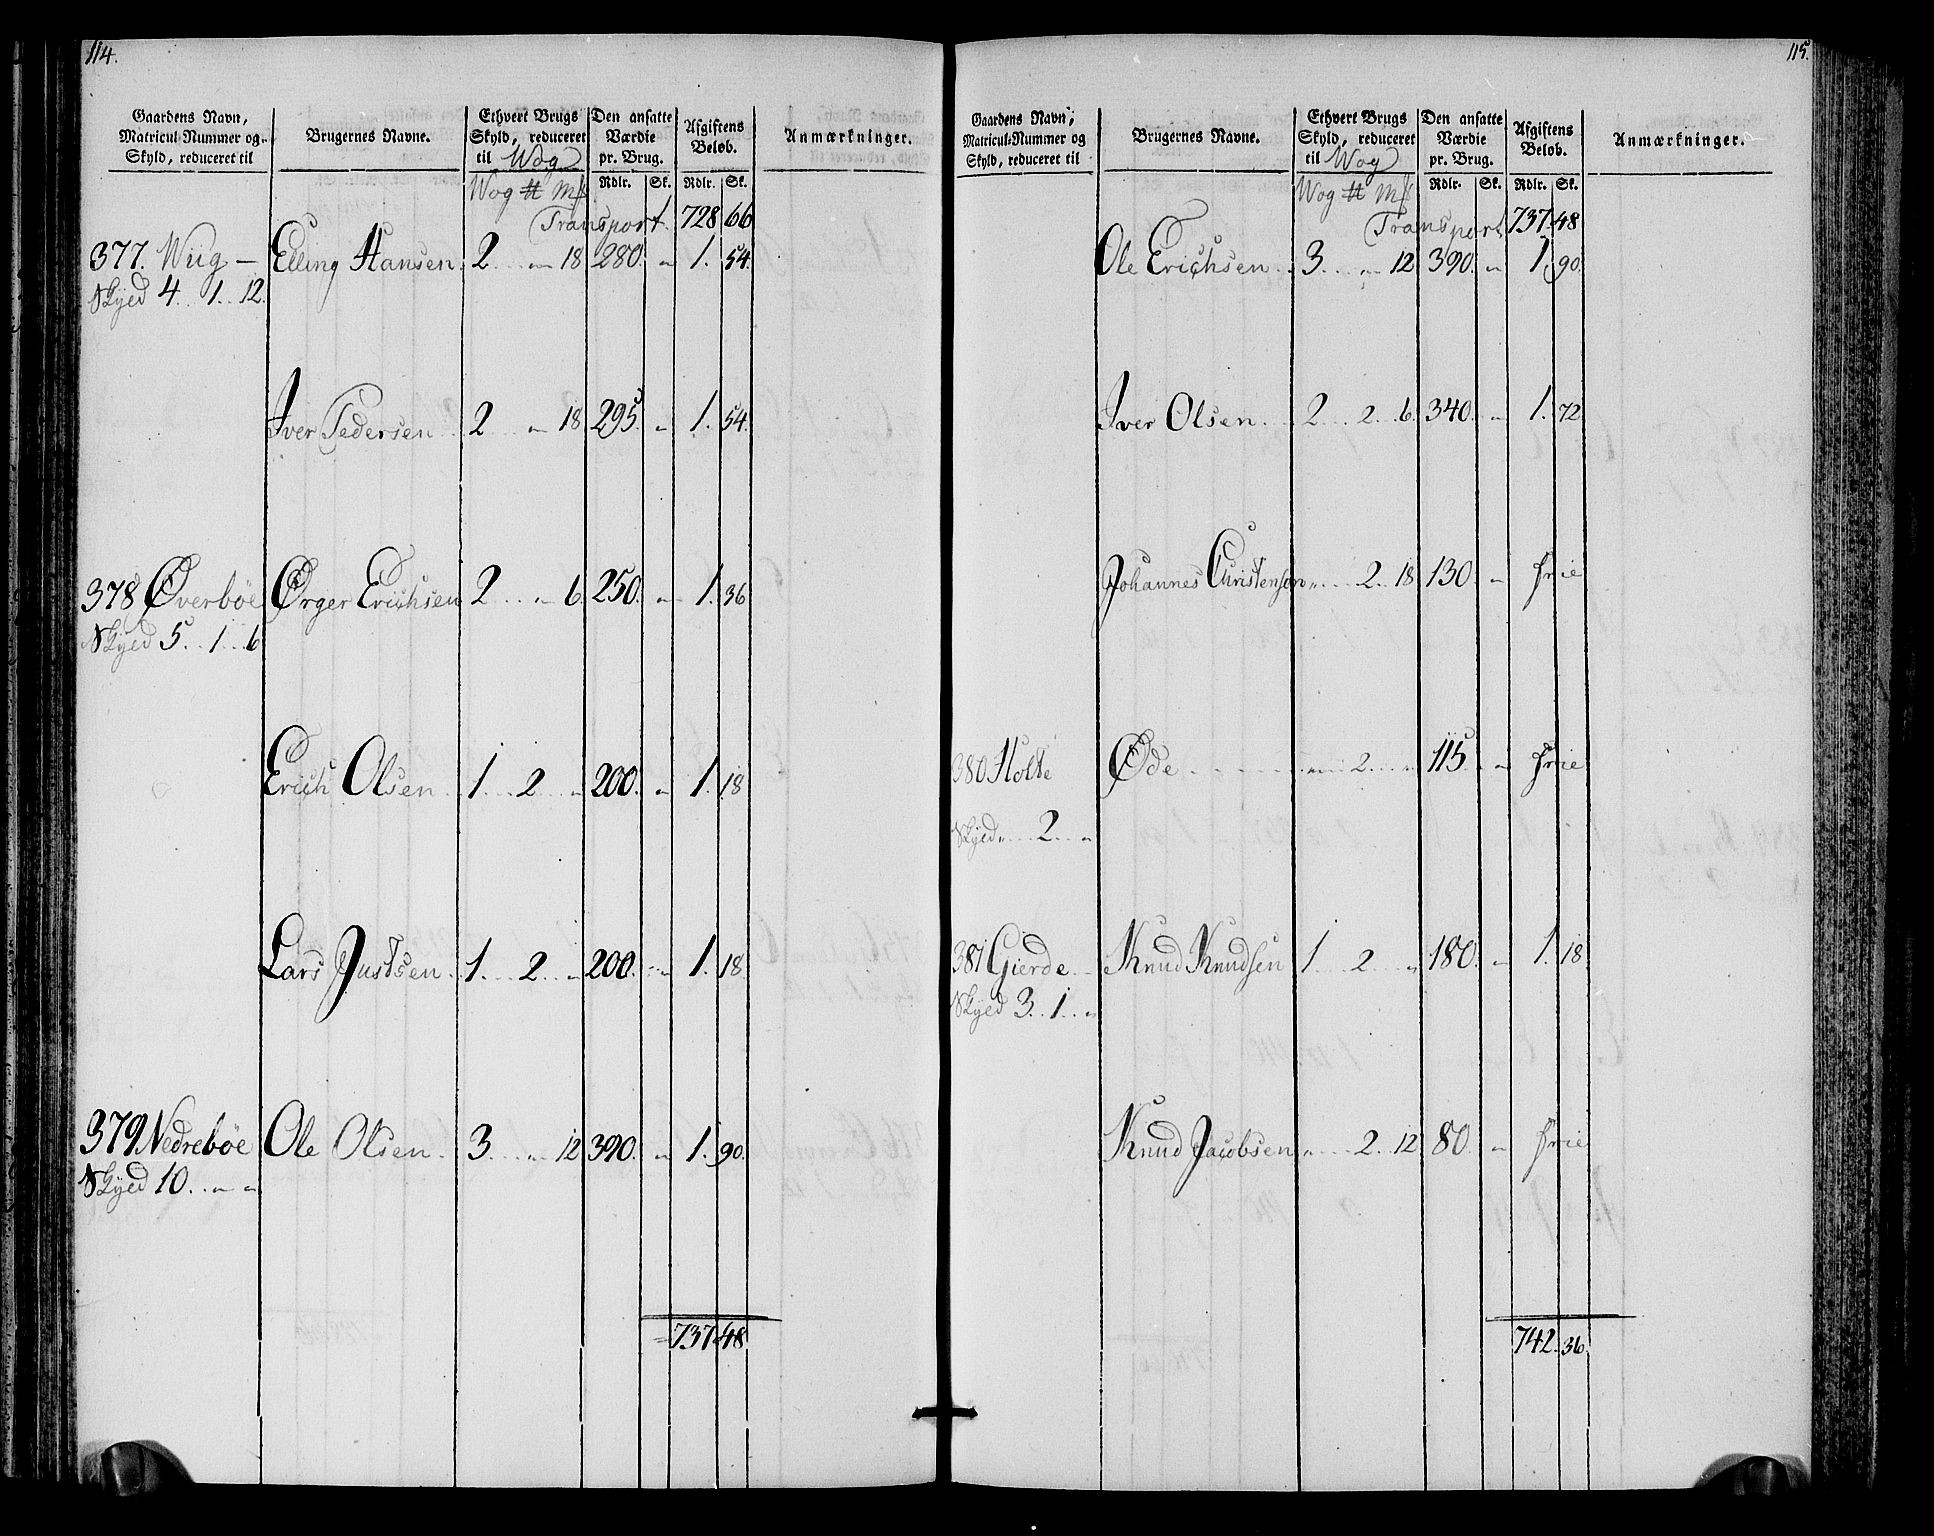 114.
Gaardens Navn, Matricul-Nummer og Skyld, reduceret til | Brugernes Navne. | Ethvert Brugs Skyld, reduceret til Wog | Den ansatte Værdie pr. Brug. | Afgiftens Beløb. | Anmærkninger.
Wog ℔ Mk | Rdlr. Sk. | Rdlr. Sk.
Transport. 728 66
377. Wiig — Elling Hansen. 2 . . „ 18 280. „ 1. 54.
Skyld 4. 1. 12.
Iver Pedersen 2 . . „ 18 295. „ 1. 54.
378 Øverbøe Ørger Erichsen 2 . . „ 6. 250. „ 1. 36
Skyld 5. . 1. . 6
Erich Olsen. 1. . . 2 . . „ 200. „ 1. 18
Lars Justsen. 1. . . 2 . . „ 200. „ 1. 18
379 Nedrebøe Ole Olsen. 3. . . „ 12 390. „ 1. 90.
Skyld 10. . „ „
737 48
115.
Gaardens Navn, Matricul-Nummer og Skyld, reduceret til | Brugernes Navne. | Ethvert Brugs Skyld, reduceret til Wog | Den ansatte Værdie pr. Brug. | Afgiftens Beløb. | Anmærkninger.
Wog ℔ Mk | Rdlr. Sk. | Rdlr. Sk.
Transport 737 48
Ole Erichsen. 3. . . „ 12 390. „ 1. 90.
Iver Olsen. . 2 . . 2 . . 6. 340. „ 1. 72
Johannes Christensen „ . . 2 . . 18 130. „ frie
380 Holte Øde . . . . „ . . 2. . . „ 115 „ frie
Skyld „ . . 2. . „
381 Gierde Knud Knudsen 1 . . 2 . . „ 180. „ 1. 18.
Skyld 3. . 1. . „
Knud Jacobsen „ . . 2 . . 12 80. „ frie
742. 36.